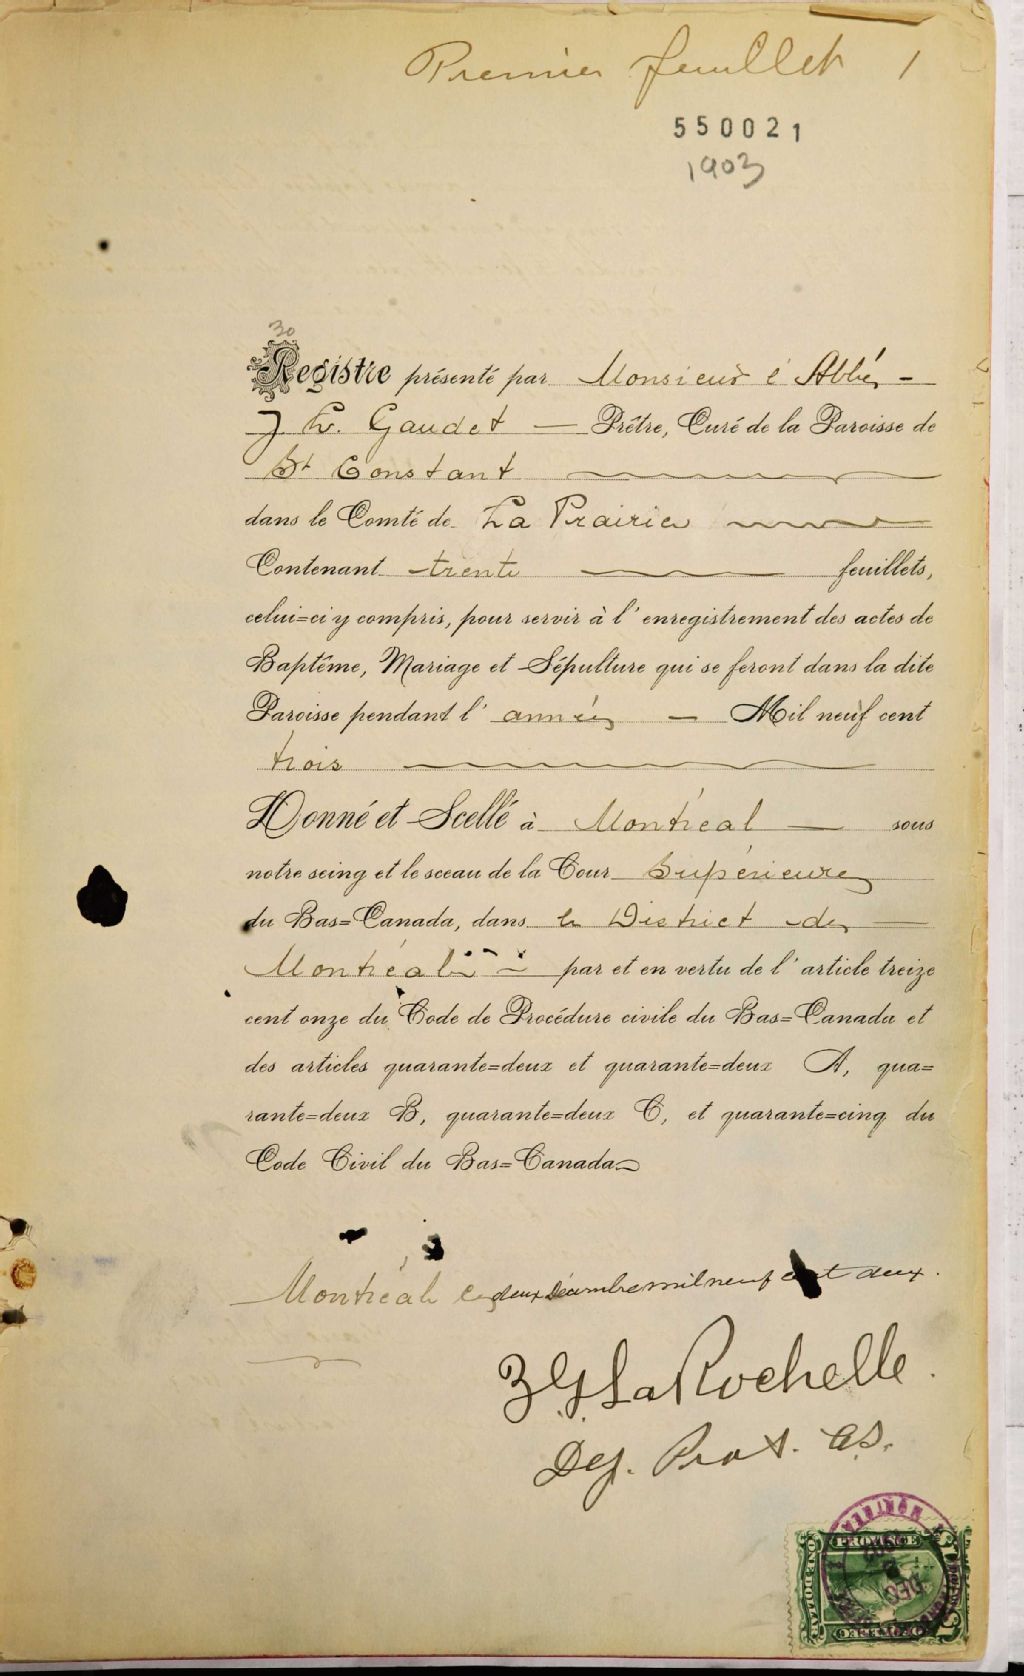 Premier feuillet 1
550021
1903
30
Registre présenté par Monsieur l'Abbé -
J. Gaudet — Prêtre, Curé de la Paroisse de
St Constant
dans le Comté de La Prairie
Contenant trente feuillets,
celui=ci y compris, pour servir à l'enregistrement des actes de
Baptême, Mariage et Sépulture qui se feront dans la dite
Paroisse pendant l'année — Mil neuf cent
trois
Donné et Scellé à Montréal — sous
notre seing et le sceau de la Cour Supérieure
du Bas=Canada, dans le District de —
Montréal par et en vertu de l'article treize
cent onze du Code de Procédure civile du Bas=Canada et
des articles quarante=deux et quarante=deux A, qua=
rante=deux B, quarante=deux C, et quarante=cinq du
Code Civil du Bas=Canada
Montréal ce deux décembre mil neuf cent deux.
LaRochelle.
Dep. Prot. C.S.
MONTREAL
PROVINCE
DEC